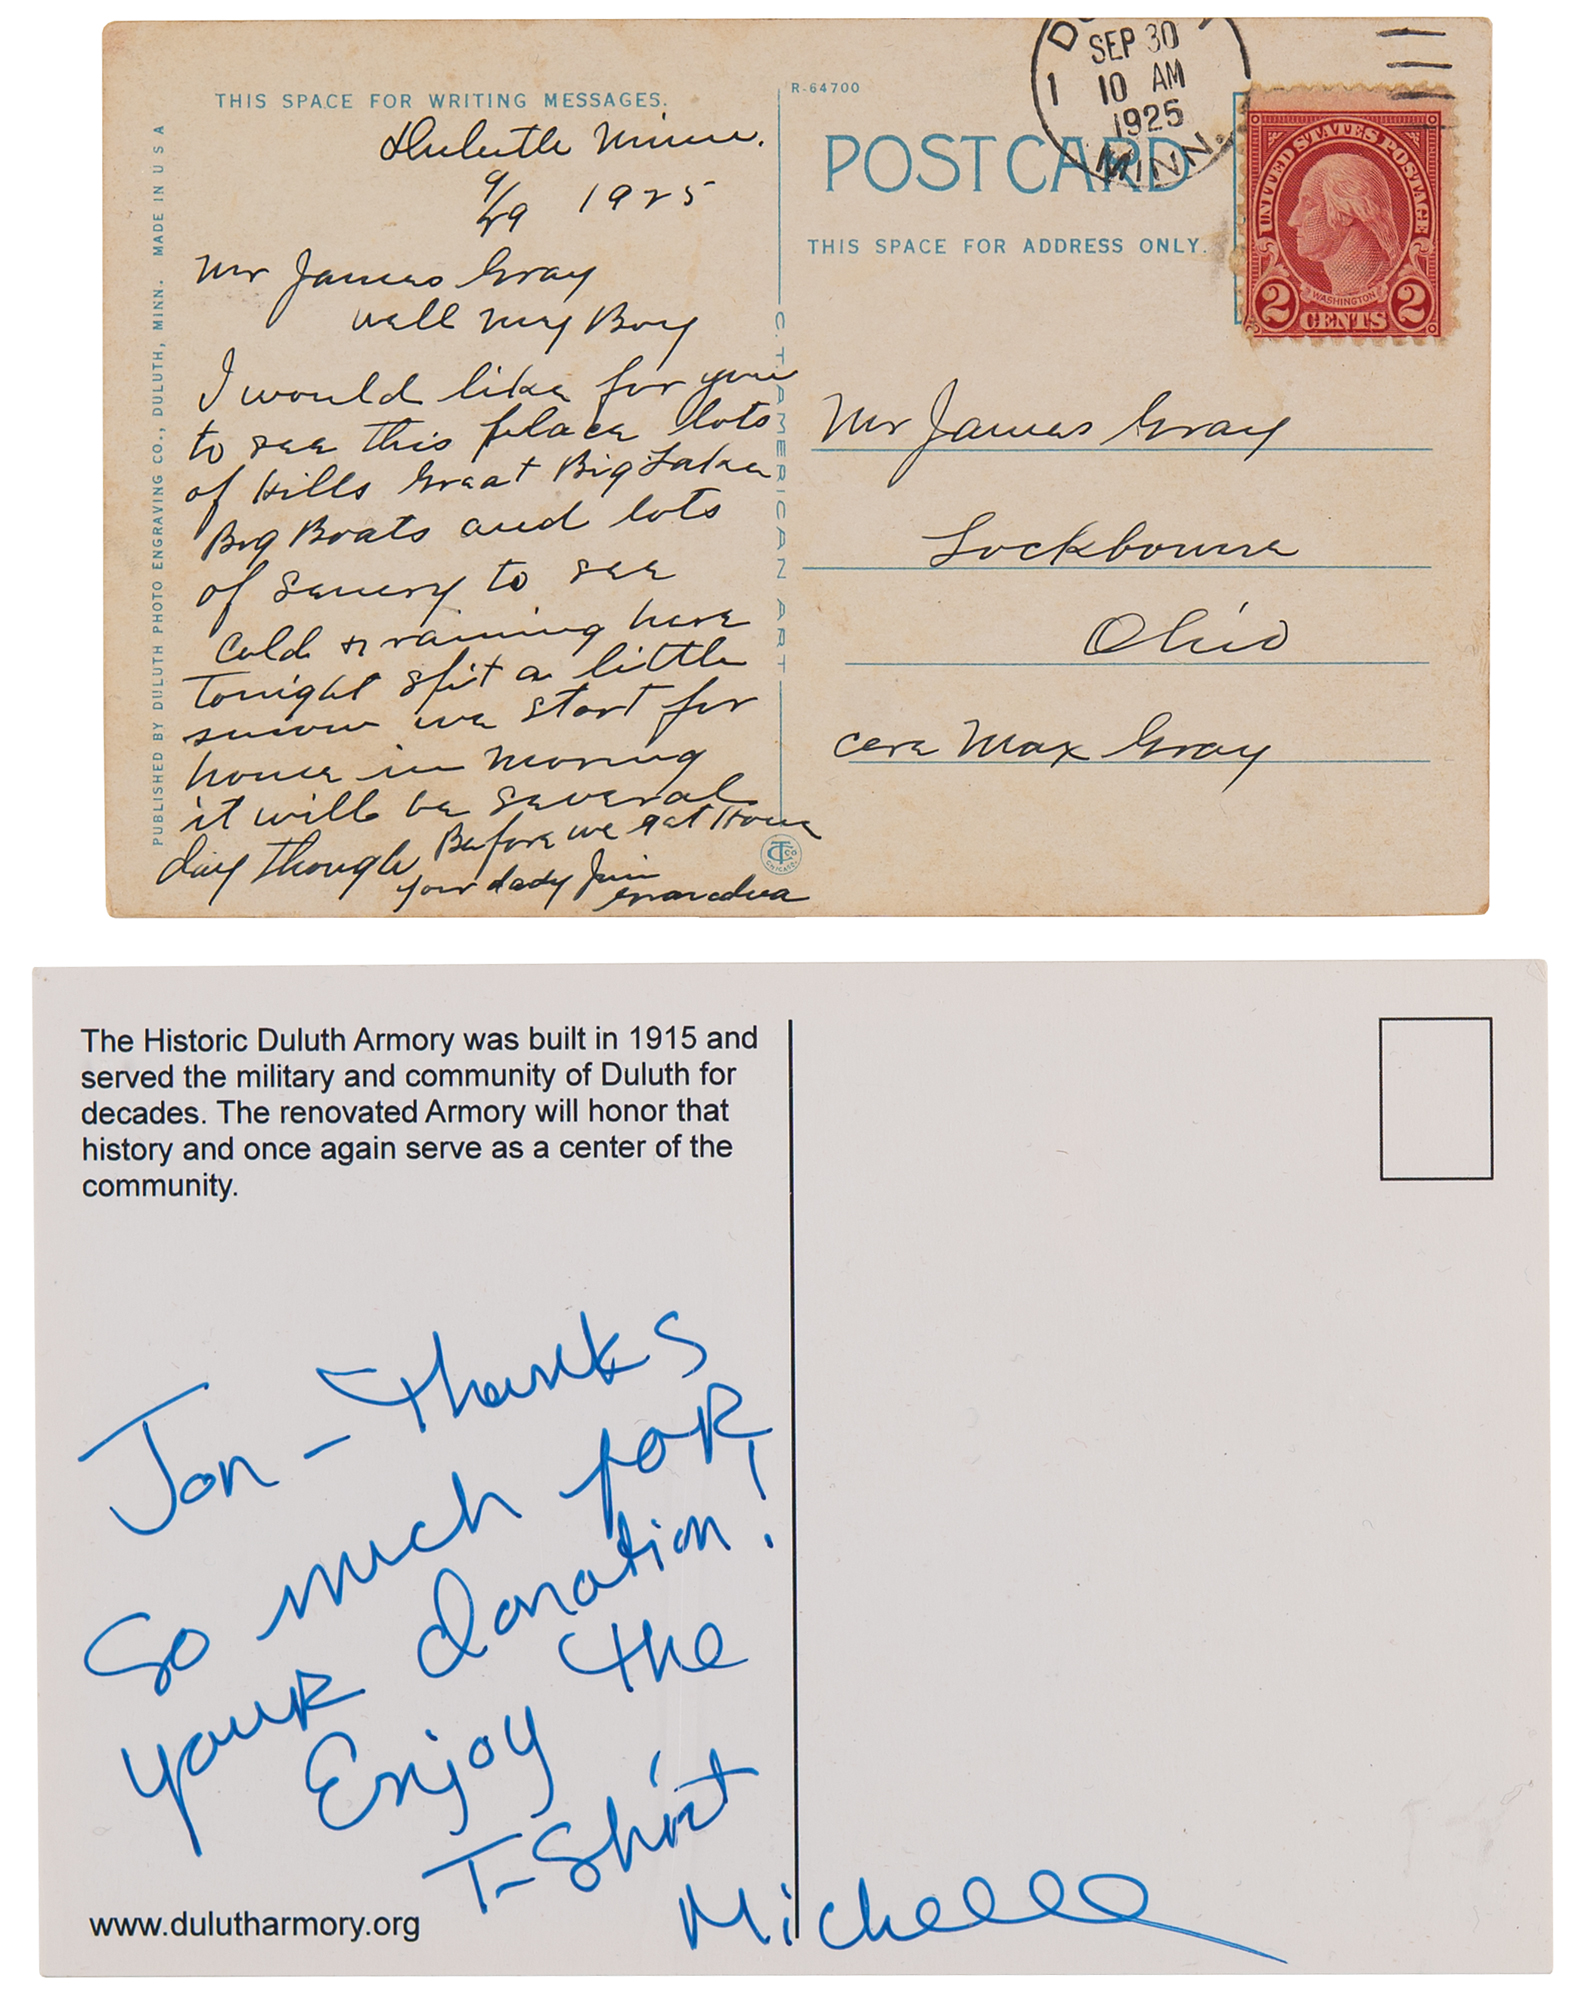 THIS SPACE FOR WRITING MESSAGES.
Duluth Minn.
9/29 1925
Mr James Gray
well my Boy
I would like for you
to see this place lots
of Hills Great Big Lake
Big Boats and lots
of senery to see
Cold & raining here
Tonight spit a little
snow we start for
home in morning
it will be several
day though Before we get Home
your dady Jim
grandva
PUBLISHED BY DULUTH PHOTO ENGRAVING CO., DULUTH, MINN. MADE IN U S A
C. T. AMERICAN ART
R-64700
POST CARD
THIS SPACE FOR ADDRESS ONLY.
SEP 30
1 10 AM
1925
MINN.
UNITED STATES POSTAGE
WASHINGTON
2 CENTS 2
Mr James Gray
Lockbourne
Ohio
care Max Gray
CT Co
CHICAGO
The Historic Duluth Armory was built in 1915 and
served the military and community of Duluth for
decades. The renovated Armory will honor that
history and once again serve as a center of the
community.
Jon - Thanks
So much for
your donation!
Enjoy the
T-Shirt
Michelle
www.dulutharmory.org